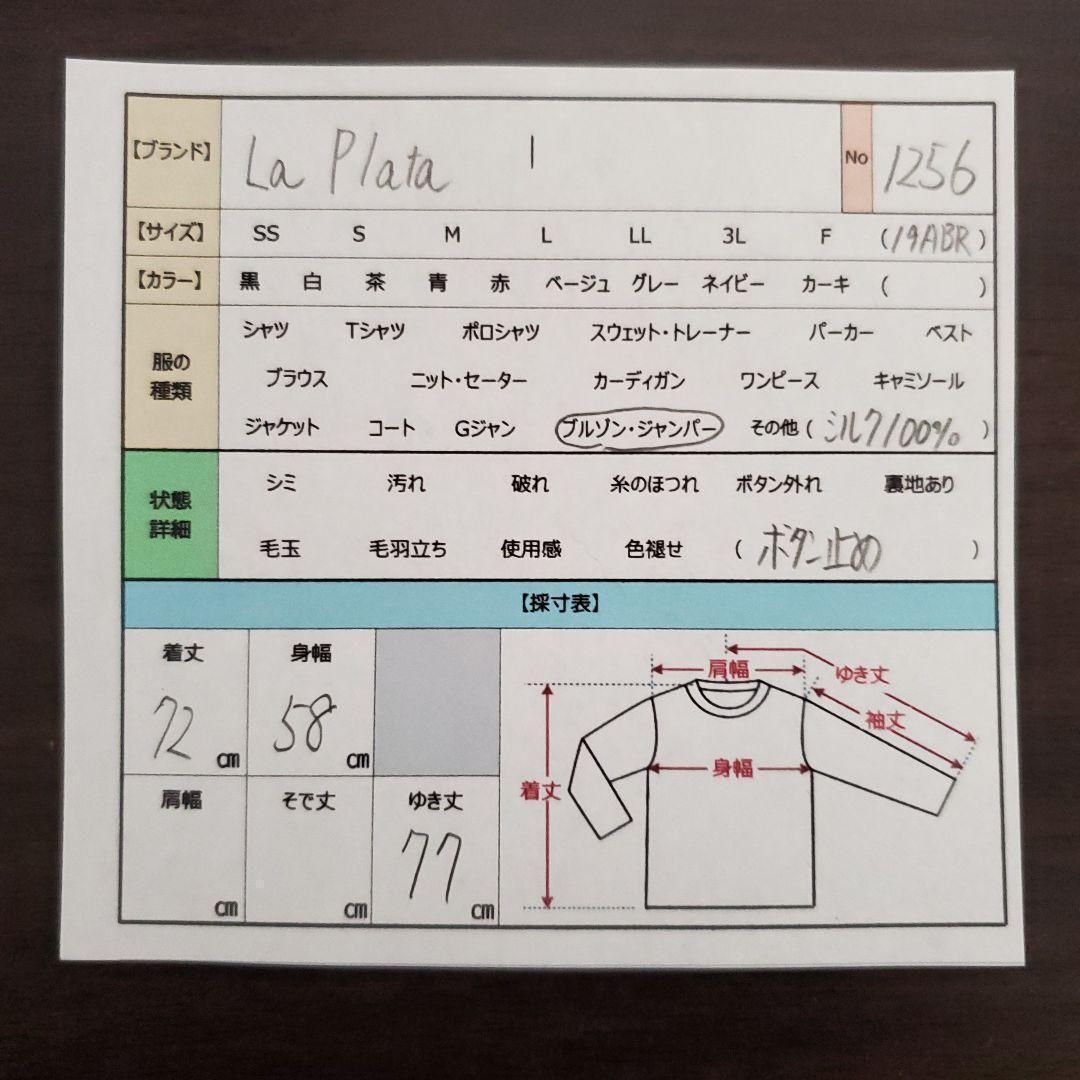 【ブランド】 La Plata No 1256
【サイズ】 SS S M L LL 3L F (19ABR)
【カラー】 黒 白 茶 青 赤 ベージュ グレー ネイビー カーキ ( )
服の種類
シャツ Tシャツ ポロシャツ スウェット・トレーナー パーカー ベスト
ブラウス ニット・セーター カーディガン ワンピース キャミソール
ジャケット コート Gジャン ブルゾン・ジャンパー その他 (シルク100%)
状態詳細
シミ 汚れ 破れ 糸のほつれ ボタン外れ 裏地あり
毛玉 毛羽立ち 使用感 色褪せ (ボタン止め)
【採寸表】
着丈 身幅
72 cm 58 cm
肩幅 そで丈 ゆき丈
cm cm 77 cm
肩幅
ゆき丈
袖丈
身幅
着丈